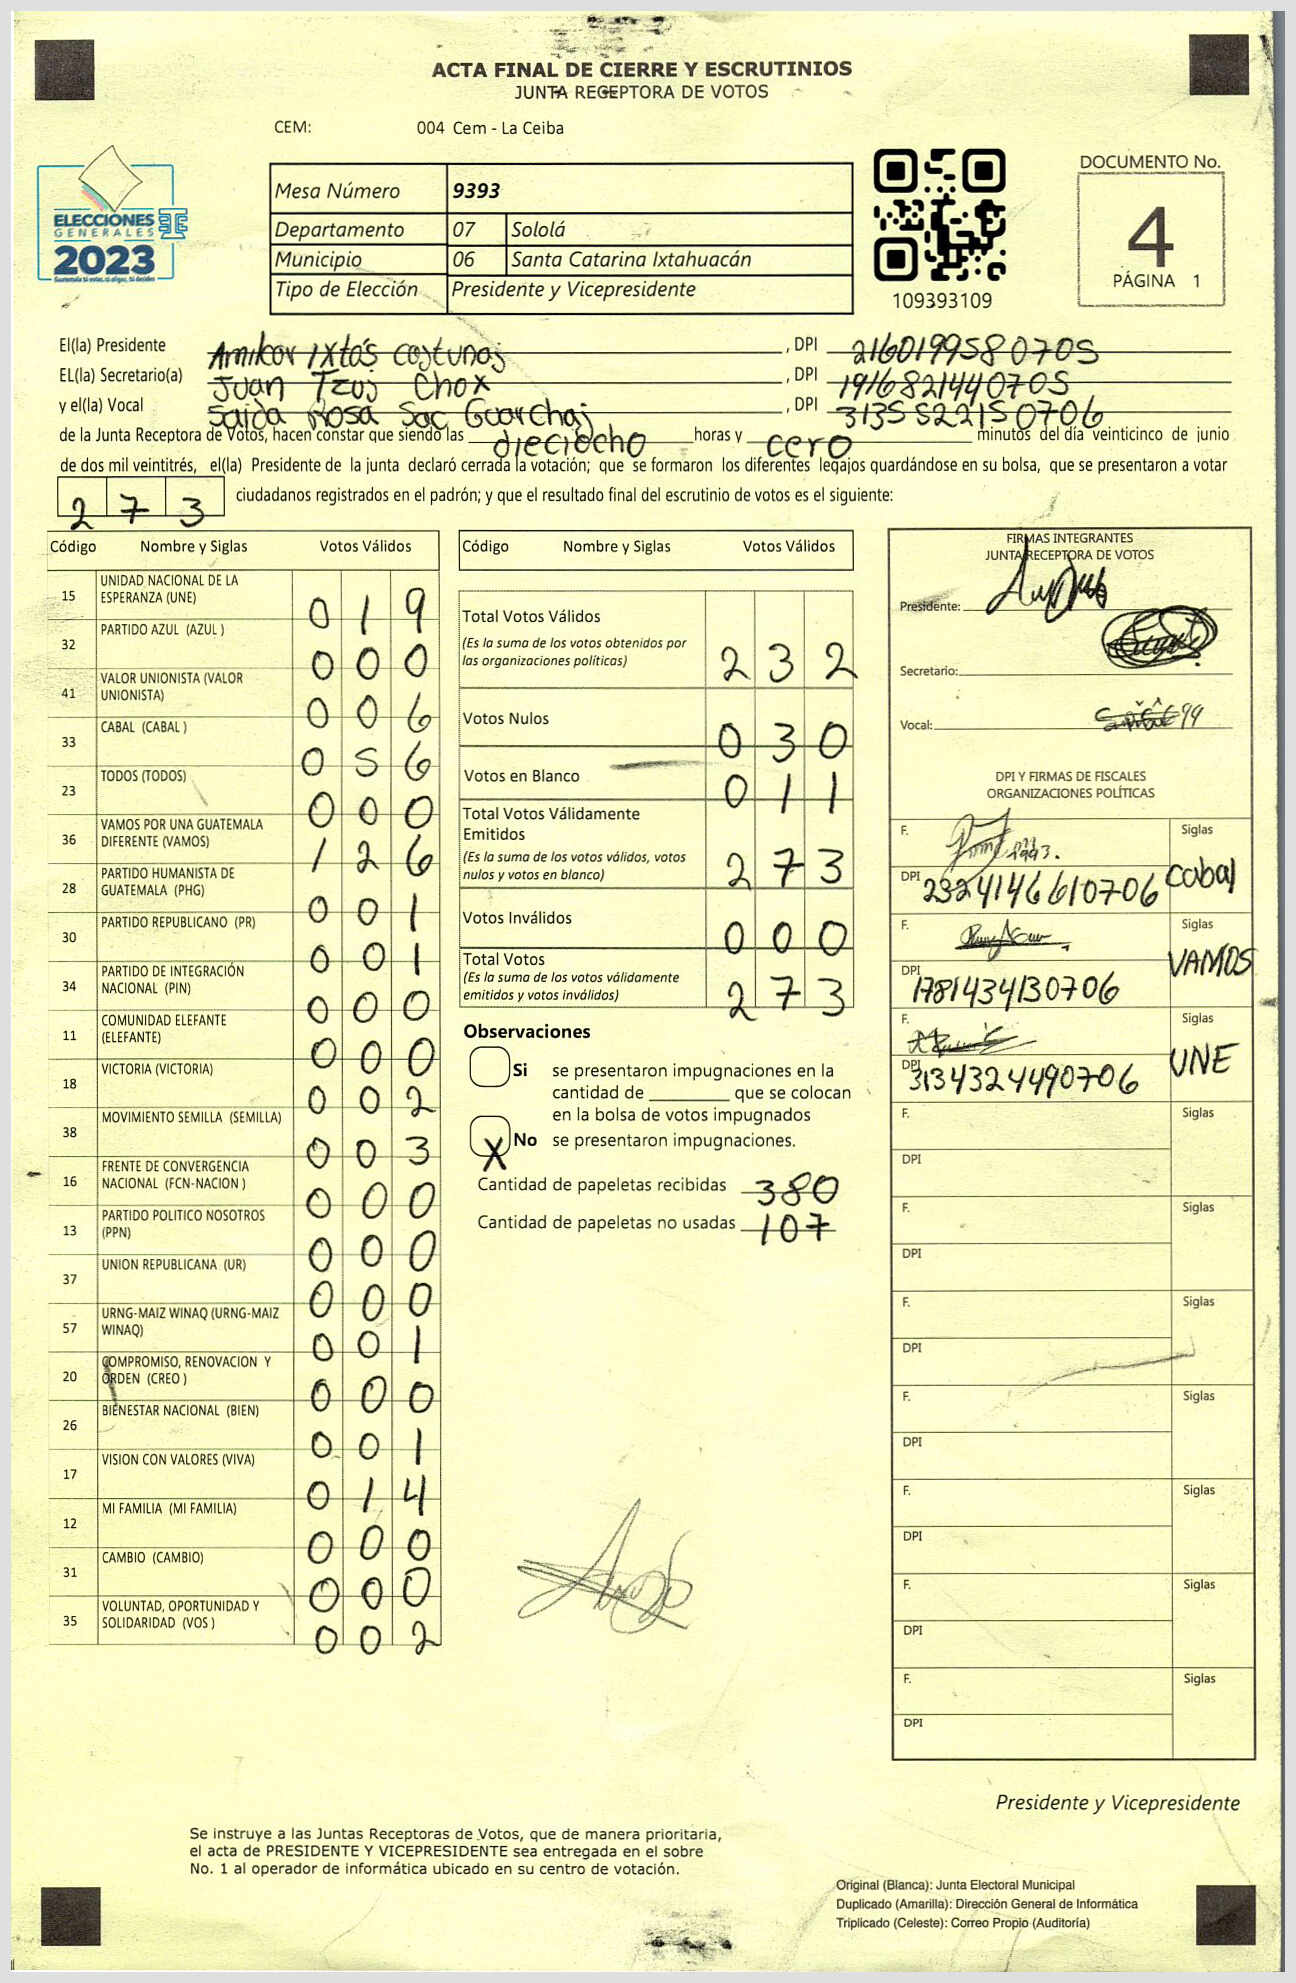 ACTA FINAL DE CIERRE Y ESCRUTINIOS
JUNTA RECEPTORA DE VOTOS
CEM: 004 Cem - La Ceiba
ELECCIONES
GENERALES
2023
Mesa Número 9393
Departamento 07 Sololá
Municipio 06 Santa Catarina Ixtahuacán
Tipo de Elección Presidente y Vicepresidente
109393109
DOCUMENTO No.
4
PÁGINA 1
El(la) Presidente Amilcar Ixtós , DPI 2160199580705
EL(la) Secretario(a) Juan Tzoj Chox , DPI 1916821440705
y el(la) Vocal Saida Rosa Sac Guarchaj , DPI 3135522150706
de la Junta Receptora de Votos, hacen constar que siendo las dieciocho horas y cero minutos del día veinticinco de junio
de dos mil veintitrés, el(la) Presidente de la junta declaró cerrada la votación; que se formaron los diferentes legajos quardándose en su bolsa, que se presentaron a votar
273 ciudadanos registrados en el padrón; y que el resultado final del escrutinio de votos es el siguiente:
Código Nombre y Siglas Votos Válidos
15 UNIDAD NACIONAL DE LA ESPERANZA (UNE) 019
32 PARTIDO AZUL (AZUL ) 000
41 VALOR UNIONISTA (VALOR UNIONISTA) 006
33 CABAL (CABAL ) 056
23 TODOS (TODOS) 000
36 VAMOS POR UNA GUATEMALA DIFERENTE (VAMOS) 126
28 PARTIDO HUMANISTA DE GUATEMALA (PHG) 001
30 PARTIDO REPUBLICANO (PR) 001
34 PARTIDO DE INTEGRACIÓN NACIONAL (PIN) 000
11 COMUNIDAD ELEFANTE (ELEFANTE) 000
18 VICTORIA (VICTORIA) 002
38 MOVIMIENTO SEMILLA (SEMILLA) 003
16 FRENTE DE CONVERGENCIA NACIONAL (FCN-NACION ) 000
13 PARTIDO POLITICO NOSOTROS (PPN) 000
37 UNION REPUBLICANA (UR) 000
57 URNG-MAIZ WINAQ (URNG-MAIZ WINAQ) 001
20 COMPROMISO, RENOVACION Y ORDEN (CREO ) 000
26 BIENESTAR NACIONAL (BIEN) 001
17 VISION CON VALORES (VIVA) 014
12 MI FAMILIA (MI FAMILIA) 000
31 CAMBIO (CAMBIO) 000
35 VOLUNTAD, OPORTUNIDAD Y SOLIDARIDAD (VOS ) 002
Código Nombre y Siglas Votos Válidos
Total Votos Válidos 232
(Es la suma de los votos obtenidos por
las organizaciones políticas)
Votos Nulos 030
Votos en Blanco 011
Total Votos Válidamente
Emitidos 273
(Es la suma de los votos válidos, votos
nulos y votos en blanco)
Votos Inválidos 000
Total Votos 273
(Es la suma de los votos válidamente
emitidos y votos inválidos)
Observaciones
Si se presentaron impugnaciones en la
cantidad de ________ que se colocan
en la bolsa de votos impugnados
X No se presentaron impugnaciones.
Cantidad de papeletas recibidas 380
Cantidad de papeletas no usadas 107
FIRMAS INTEGRANTES
JUNTA RECEPTORA DE VOTOS
Presidente:
Secretario:
Vocal:
DPI Y FIRMAS DE FISCALES
ORGANIZACIONES POLÍTICAS
F. Siglas
DPI 2324146610706 Cabal
F. Siglas
DPI 1781434130706 VAMOS
F. Siglas
DPI 3134324490706 UNE
F. Siglas
DPI
F. Siglas
DPI
F. Siglas
DPI
F. Siglas
DPI
F. Siglas
DPI
F. Siglas
DPI
F. Siglas
DPI
Presidente y Vicepresidente
Se instruye a las Juntas Receptoras de Votos, que de manera prioritaria,
el acta de PRESIDENTE Y VICEPRESIDENTE sea entregada en el sobre
No. 1 al operador de informática ubicado en su centro de votación.
Original (Blanca): Junta Electoral Municipal
Duplicado (Amarilla): Dirección General de Informática
Triplicado (Celeste): Correo Propio (Auditoría)